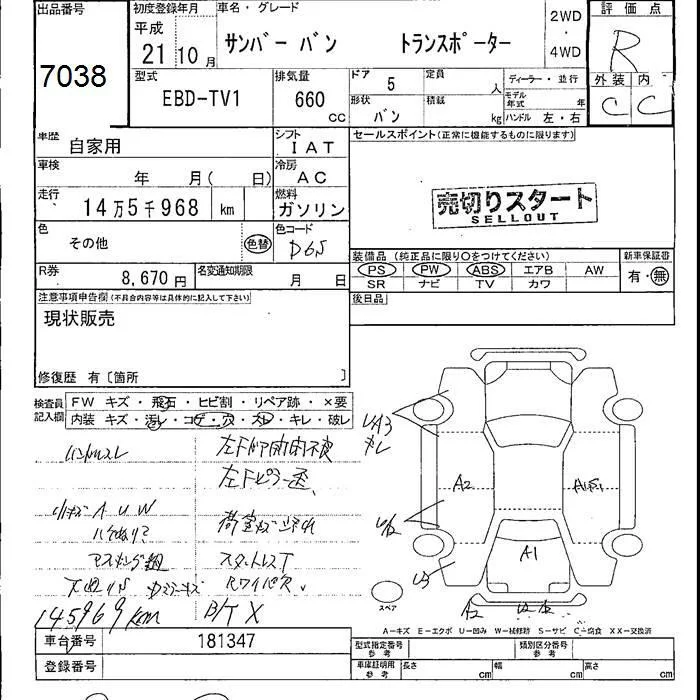 出品番号
7038
初度登録年月
平成
21 10 月
車名・グレード
サンバー バン トランスポーター
2WD
・
4WD
評価点
R
外装 内
C C
型式
EBD-TV1
排気量
660
CC
ドア
5
定員
人
形状
バン
積載
kg
ディーラー・並行
モデル年式 年
ハンドル 左・右
車歴
自家用
シフト
IAT
セールスポイント(正常に機能するものに限ります)
車検
年 月( 日)
冷房
AC
走行
14万5千968 km
燃料
ガソリン
売切りスタート
SELLOUT
色
その他
色替
色コード
D6S
装備品 (純正品に限り○をつけてください)
新車保証書
PS PW ABS エアB AW
SR ナビ TV カワ
有・無
R券
8,670 円
名変通知期限
月 日
後日品
注意事項申告欄(不具合内容等は具体的に記入して下さい)
現状販売
修復歴 有〔箇所 〕
検査員記入欄
FW キズ・飛石・ヒビ割・リペア跡・×要
内装 キズ・汚レ・コゲ・穴・スレ・キレ・破レ
ハンドルスレ
スタットレスT
Rワイパ欠
145969km
B/T X
U3
A2
A1
A2
スペア
A−キズ E−エクボ U−凹み W−補修跡 S−サビ C−腐食 XX−交換済
車台番号
181347
登録番号
型式指定番号
参考
類別区分番号
参考
車庫証明用
参考
長さ cm
幅 cm
高さ cm